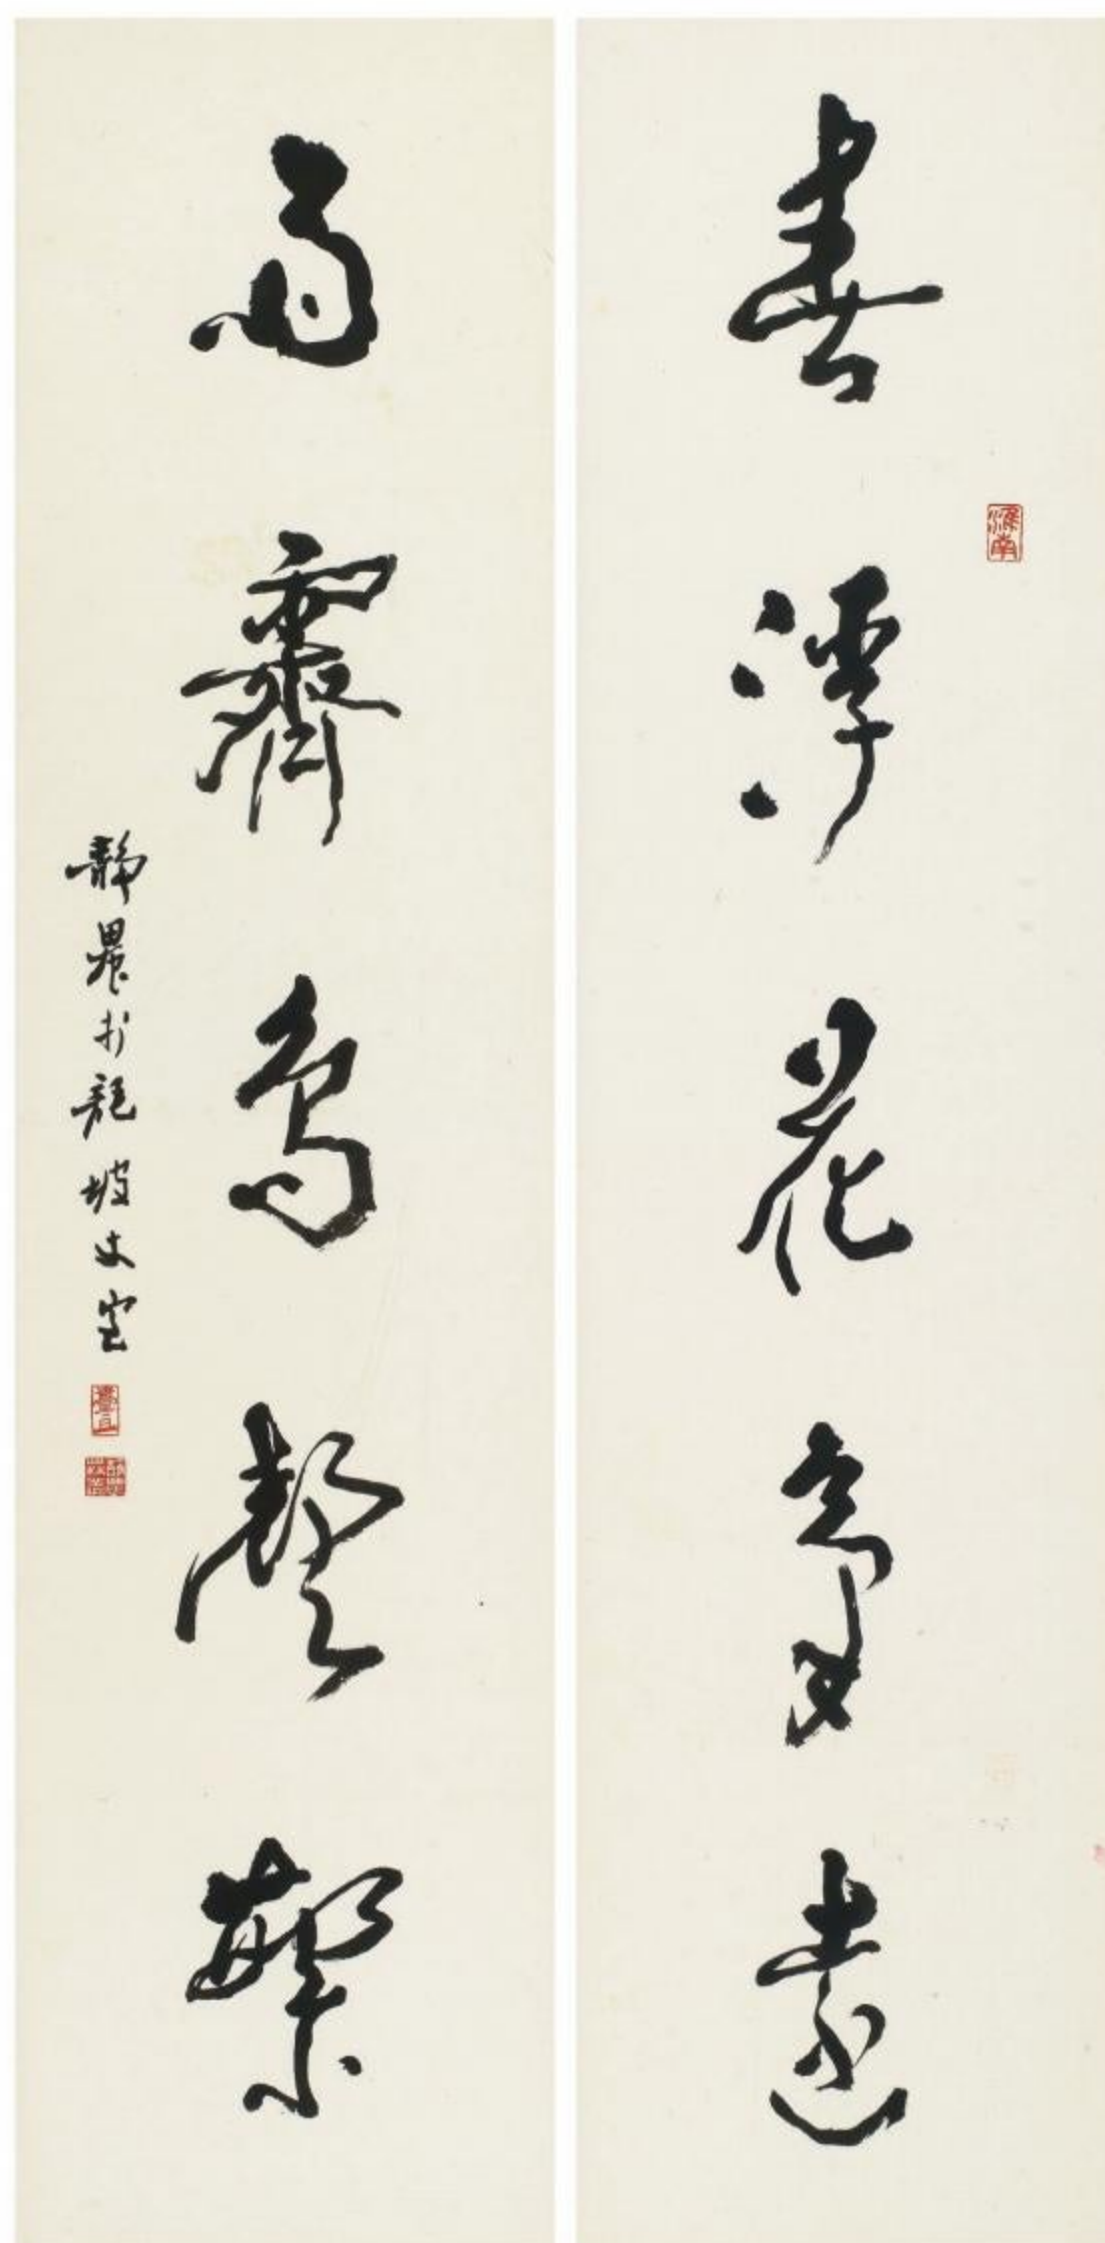 春浮花氣遠
淮南
雨霽鳥聲繁
靜農於龍坡丈室